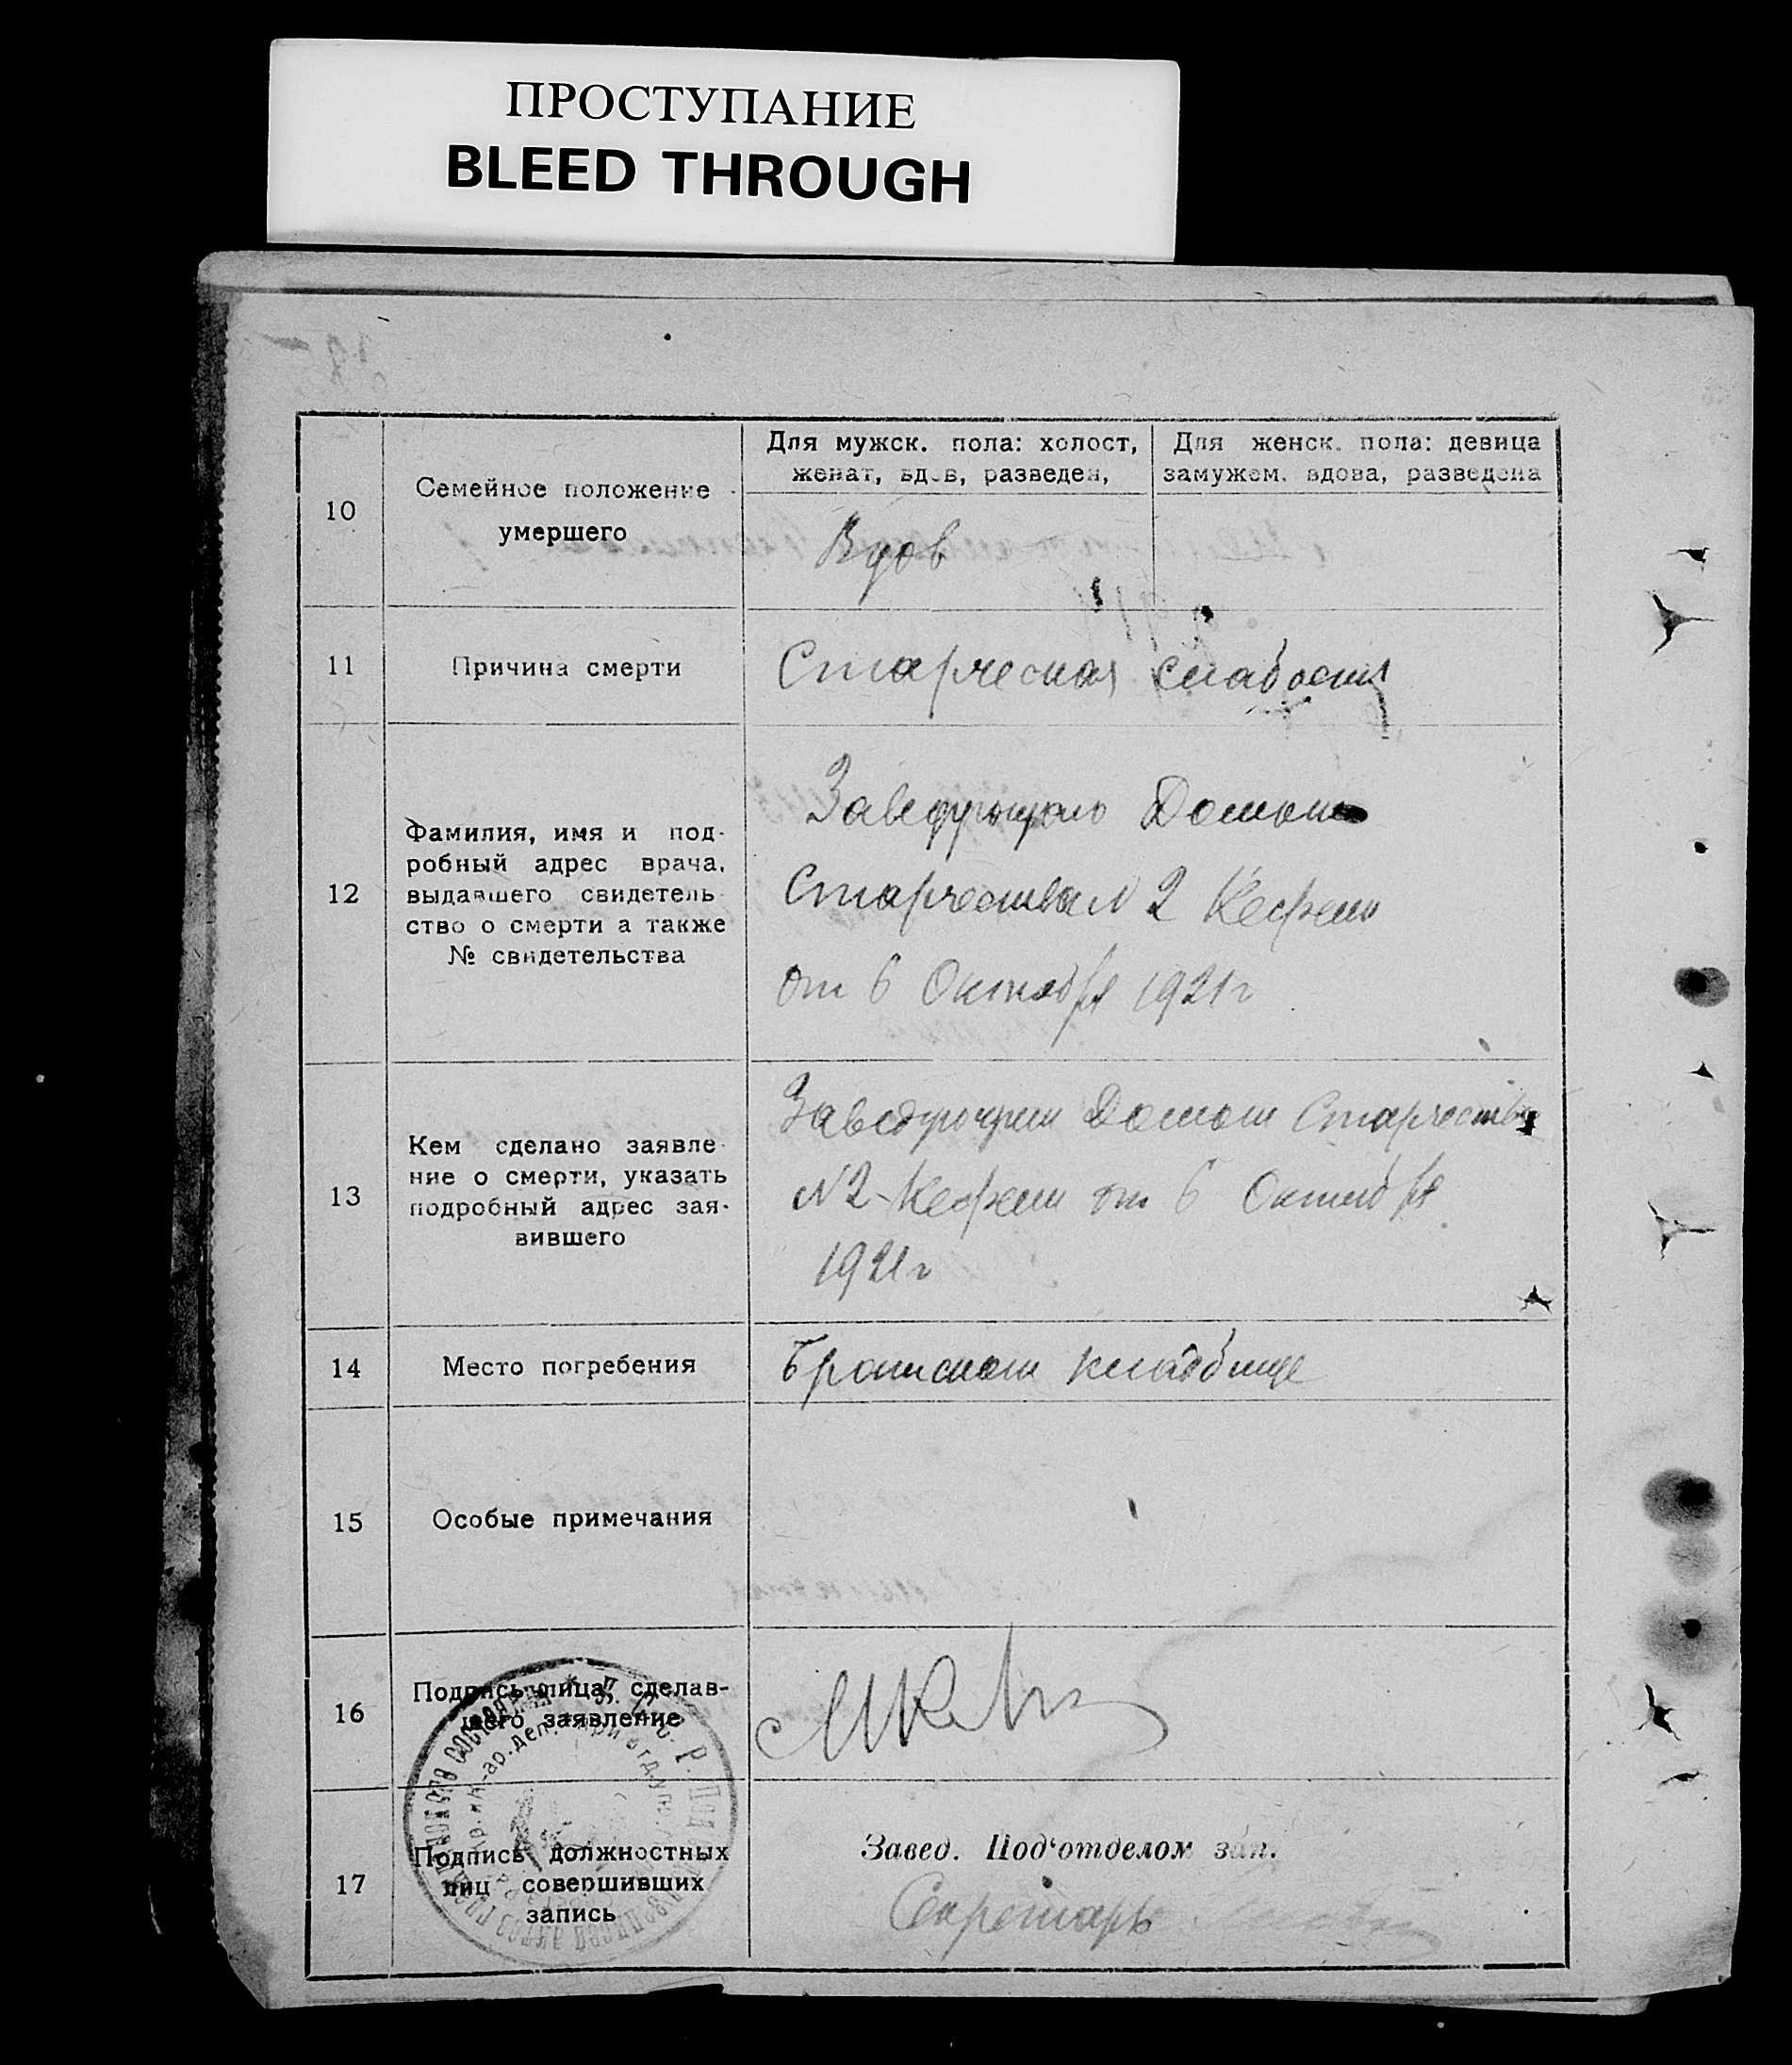 ПРОСТУПАНИЕ
BLEED THROUGH
10
Семейное положение
умершего
Для мужск. пола: холост,
женат, вдов, разведен,
Для женск. пола: девица
замужем. вдова, разведена
Вдов
11
Причина смерти
Старческая слабость
12
Фамилия, имя и под-
робный адрес врача,
выдавшего свидетель-
ство о смерти а также
№ свидетельства
Заведующаго Домом
Старчества N 2
от 6 Октября 1921 г
13
Кем сделано заявле-
ние о смерти, указать
подробный адрес зая-
вившего
Заведующим Домом Старчества
N2 от 6 Октября
1921 г
14
Место погребения
кладбище
15
Особые примечания
16
Подпись лица, сделав-
шего заявление
17
Подпись должностных
лиц совершивших
запись
Завед. Под‘отделом зап.
Секретарь